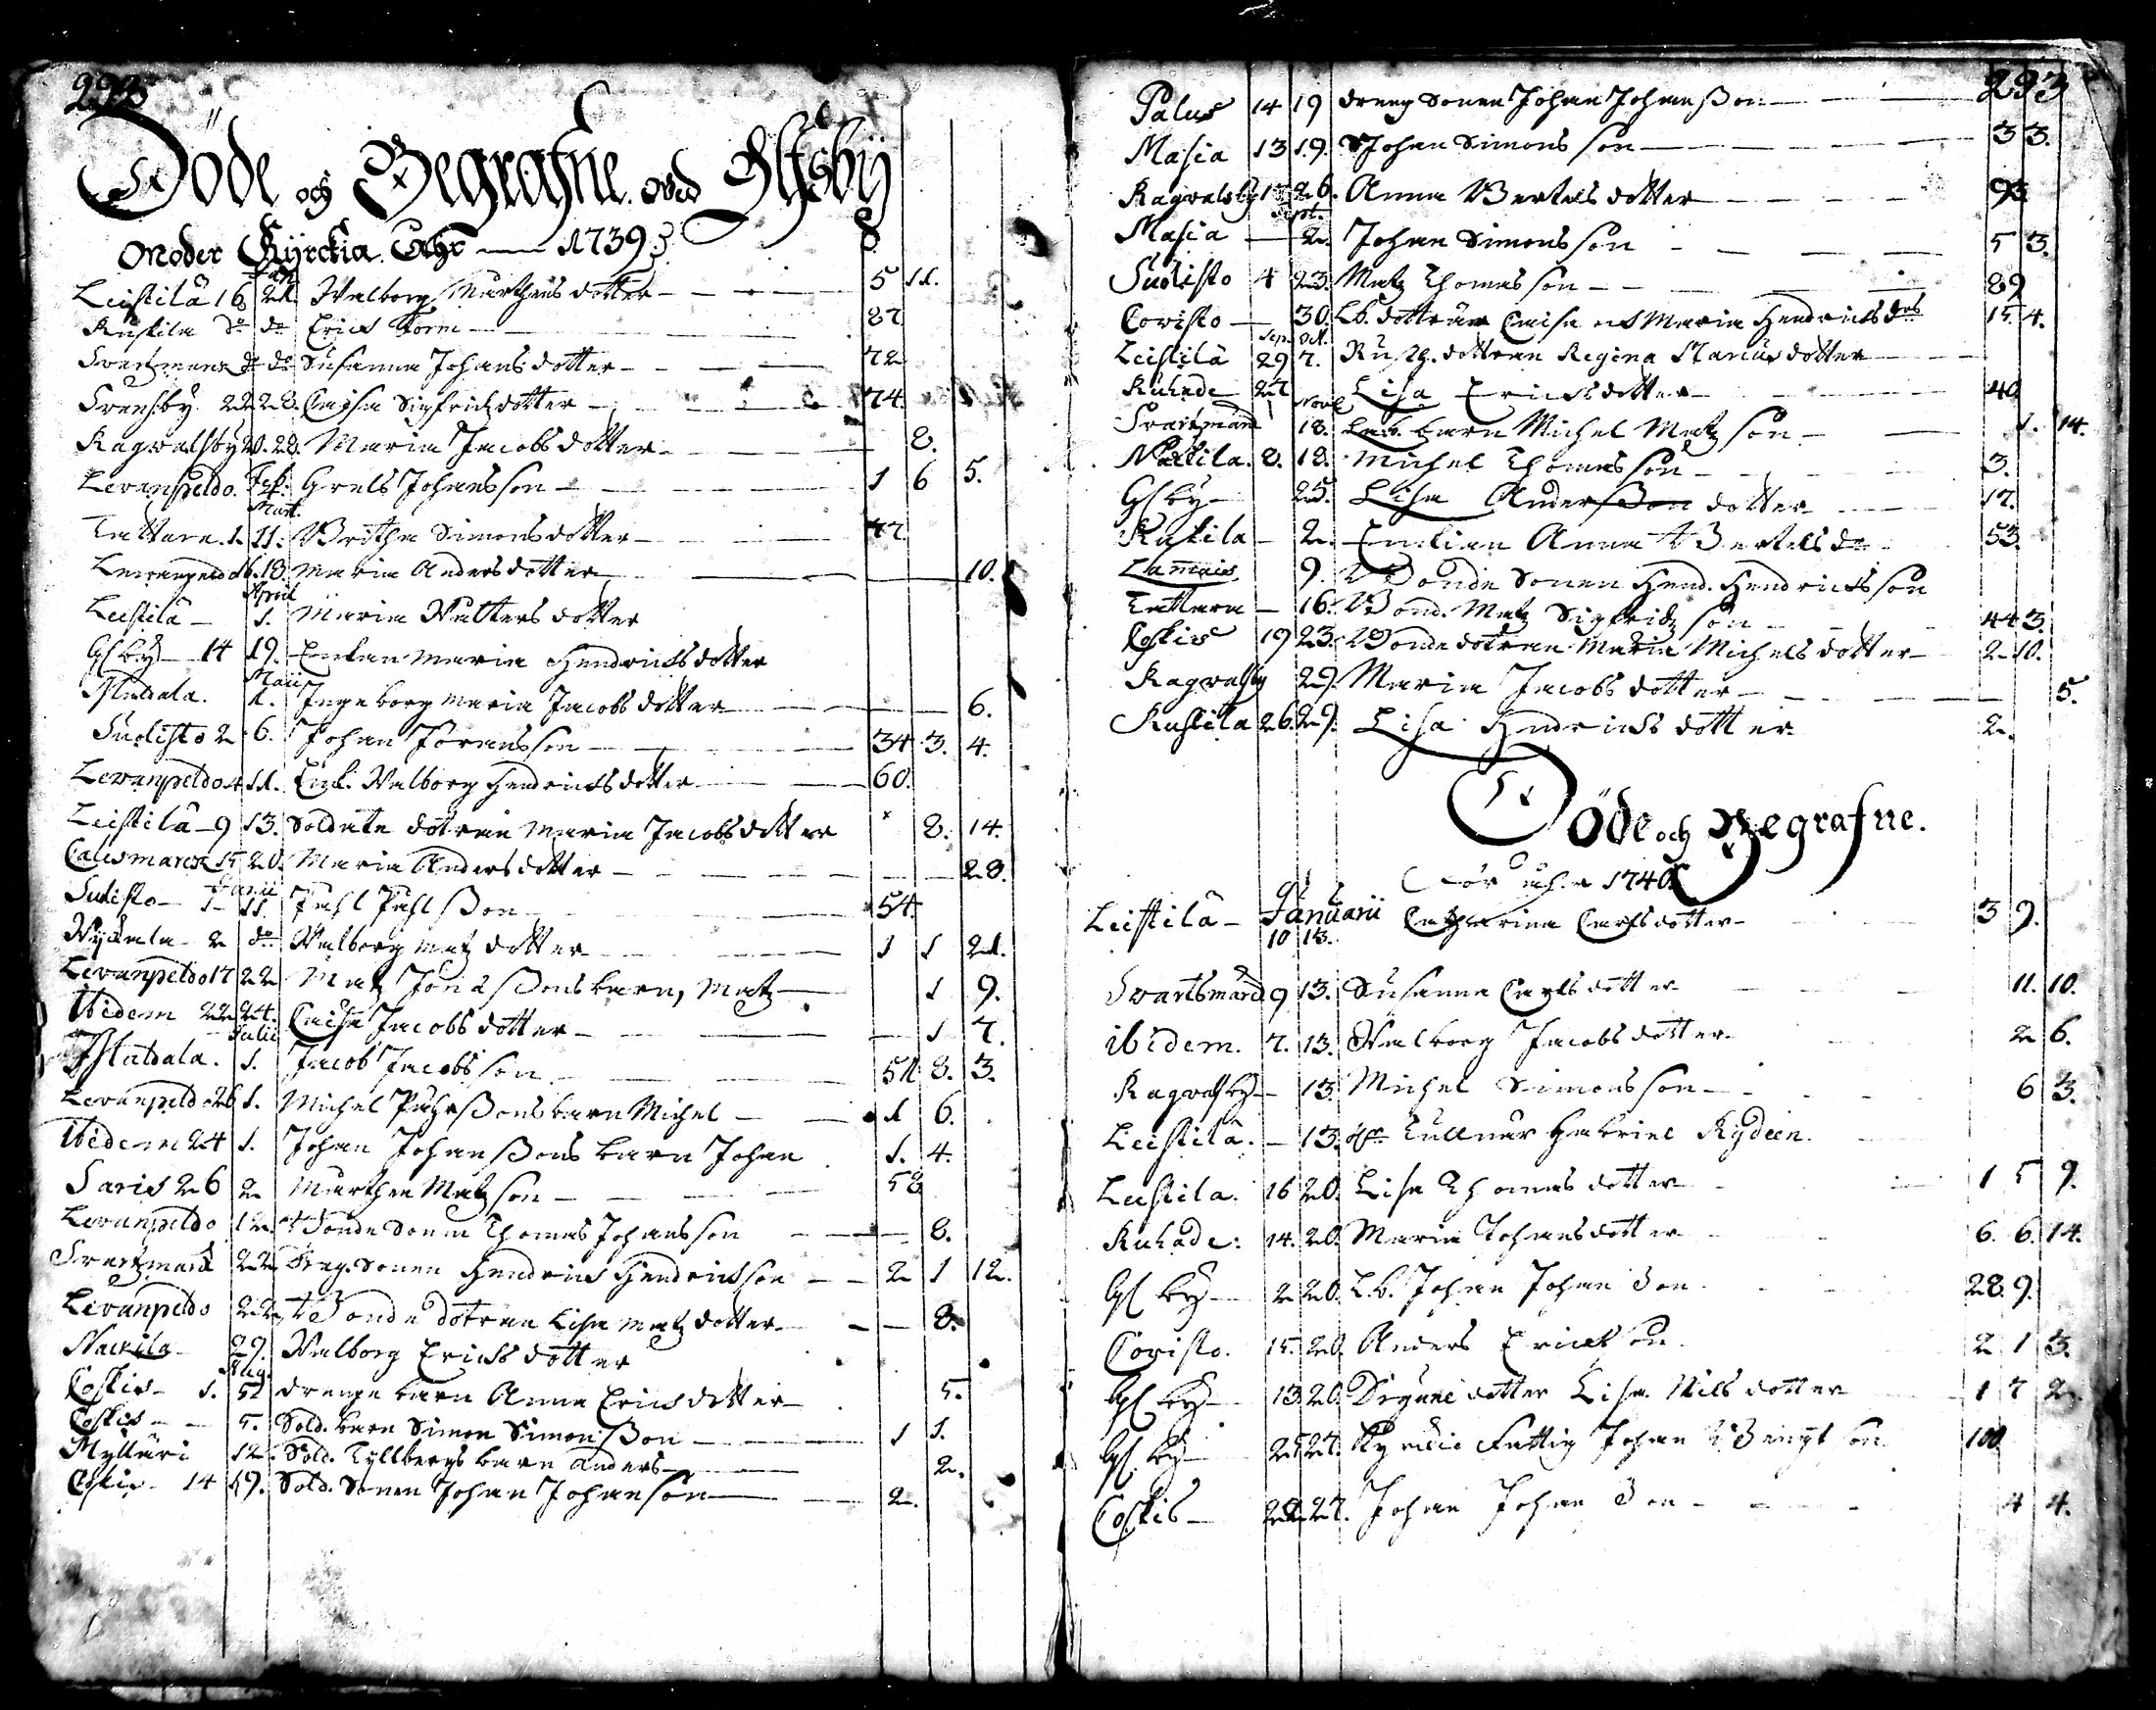 292
Döde och Begrafne. wed Ulfsbÿ
Moder Kÿrckia Åhr — 1739
Jan
Leistilä 16 21 Walborg Marthens dotter 5 11.
Kustila do do Erick 87
Svartzmarck do do Susanna Johans dotter 72
Svensby 22 28. Caisa Sigfridz dotter 74.
Ragwalsby 20. 28. Maria Jacobs dotter 8.
Levanpeldo. Feb. Grels Johansson 1 6 5.
Mart.
Tattara. 1. 11. Britha Simons dotter 77
Levanpeldo 16. 18. Maria Anders dotter 10.
April
Leistilä 1. Maria Walters dotter
Ulfsby 14 19. Enkan Maria Hendricks dotter
Maii
Isludala. 1. Ingeborg Maria Jacobs dotter 6.
Suolisto 2 6. Johan Jöransson 34. 3. 4.
Levanpeldo 4 11. Enk. Walborg Hendricks dotter 60.
Leistilä 9 13. Soldate dotran Maria Jacobs dotter 8. 14.
Caismarck 15 20. Maria Anders dotter 28.
Junii
Suolisto 1 11. Påhl Påhlßon 54.
Nyckala 2 do Walborg Matz dotter 1 1 21.
Levanpeldo 17 22 Matz Jonaßons barn, Matz 1 9.
Ibidem 22 24. Caisa Jacobs dotter 1 7.
Julii
Isludala. 1. Jacob Jacobsson 51 8. 3.
Levanpeldo 26 1. Michel barn Michel 1 6.
Ibidem 24 1. Johan Johanßons barn Johan 1. 4.
Saris 26 2 Marthen Matzson 58
Levanpeldo 12. Bonde Sonen Thomas Johansson 8.
Svartzmarck 22 Dreng. Sonen Hendrick Hendricksson 2 1 12.
Levanpeldo 22 Bonde dotran Lisa Matz dotter 8.
Nackila 29. Walborg Ericks dotter
Aug.
Coskis 1. 5 drenge barn Anna Ericks dotter 5.
Coskis 5. Sold. barn Simon Simonßon 1 1.
Mylläri 12. Sold. Tyllbergs barn Anders 2.
Coskis 14 19. Sold. Sonen Johan Johansson 2.
293
Palus 14 19 dreng Sonen Johan Johanßon
Masia 13 19. Johan Simonsson 3 3.
Ragwalsby 17 26. Anna Bertels dotter 93
Sept.
Masia 2. Johan Simonsson 5 3.
Suolisto 4 23. Matz Thomasson 89
Covisto 30. Lb. dottrar Caisa och Maria Hendricks 15. 4.
Sep. Oct.
Leistilä 29 7. dottran Regina dotter
Ruhade 27 Lisa Ericksdotter 40
Nove
Svartzmarck 18. barn Michel Matzson 1. 14.
Nackila. 8. 18. Michel Thomasson 3.
Ulfsby 25. Lisa Anders dotter 17.
Kustila 2. Enckian Anna Bertels dr 53.
Lammais 9. Bonde Sonen Hend. Hendricksson
Tattara 16. Bond. Matz Sigfridzson 44 3.
Coskis 19 23. Bonde dotran Maria Michels dotter 2 10.
Ragwalsby 29. Maria Jacobs dotter 5.
Kustila 26. 29. Lisa Hendricks dotter 2.
Döde och Begrafne.
För åhr 1740
Januarii
Leistilä 10 13. Catharina Carlsdotter 3 9.
Svartsmarck 9 13. Susanna Carls dotter 11. 10.
ibidem. 7. 13. Walborg Jacobs dotter 2 6.
Ragwalsby 13. Michel Simonsson 6 3.
Leistilä. 13. Gabriel Rydeen.
Leistila. 16 20. Lisa Thomas dotter 1 5 9.
Ruhade: 14. 20. Maria Johans dotter 6. 6. 14.
Ulfsby 2 20. L.b. Johan Johanßon 28 9.
Covisto. 15. 20. Anders Ericksson 2 1 3.
Ulfsby 13 20. dotter Lisa Nils dotter 1 7 2.
Ulfsby 25 27. Fattig Johan Bengtson 100
Coskis 22 27. Johan Johanßon 4 4.